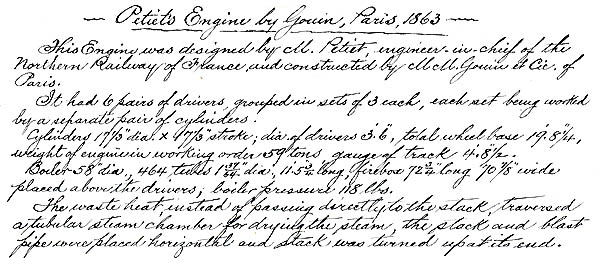 Petiet's Engine by Gouin, Paris, 1863
This Engine was designed by M. Petiet, engineer-in-chief of the
Northern Railway of France and constructed by M.M. Gouin et Cie. of
Paris.
It had 6 pairs of drivers, grouped in sets of 3 each, each set being worked
by a separate pair of cylinders.
Cylinders 17⅓" dia. × 17⅓" stroke; dia. of drivers 3'.6", total wheel base 19'.8"¼,
weight of engine in working order 59 tons, gauge of track 4'.8½".
Boiler 58" dia., 464 tubes dia., 11'.5¾" long, firebox 72¾" long 70⅞" wide
placed above the drivers; boiler pressure 118 lbs.
The waste heat, instead of passing directly to the stack, traversed
a tubular steam chamber for drying the steam, the stack and blast
pipe were placed horizontal and stack was turned up at its end.